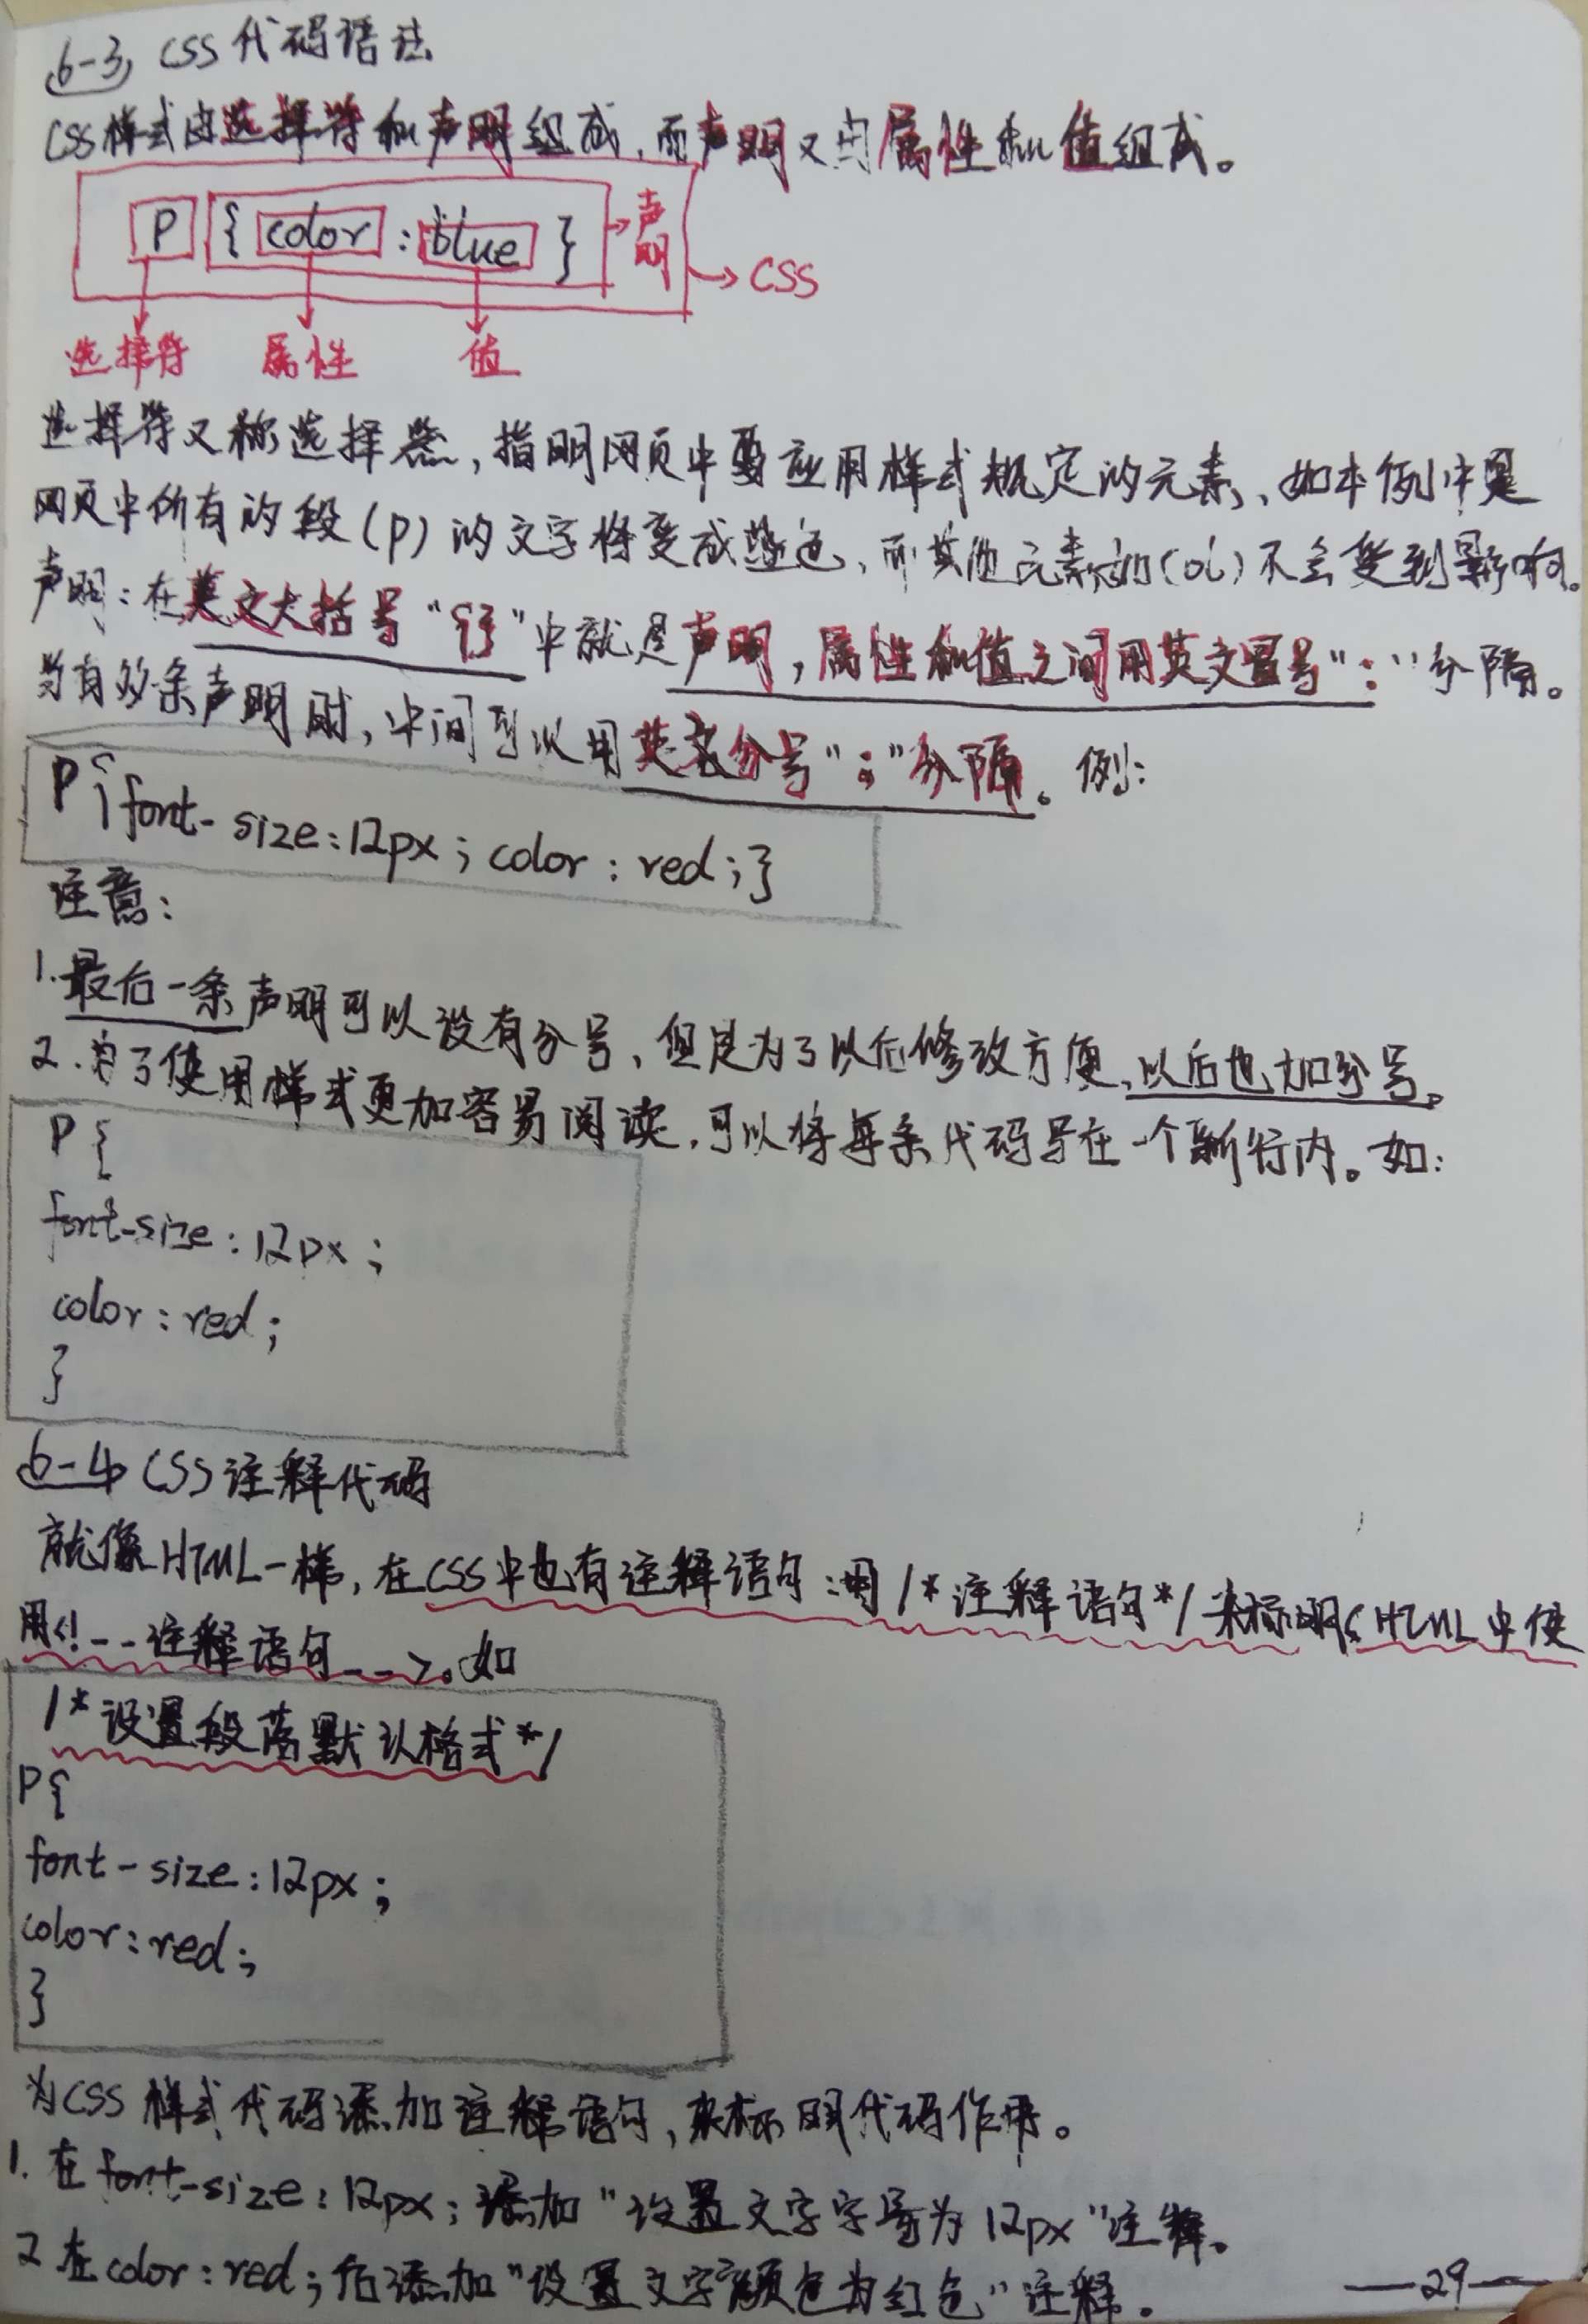 6-3, CSS代码语法
CSS样式由选择符和声明组成,而声明又由属性和值组成。
P { color : blue } → 声明
→ CSS
选择符 属性 值
选择符又称选择器,指明网页中要应用样式规定的元素、如本例中是
网页中所有的段(P)的文字将变成蓝色、而其他元素如(ol)不会受到影响。
声明:在英文大括号“{}”中就是声明,属性和值之间用英文冒号“:”分隔。
当有多条声明时,中间可以用英文分号“;”分隔。例:
P{font-size:12px;color:red;}
注意:
1.最后一条声明可以没有分号、但是为了以后修改方便、以后也加分号。
2.为了使用样式更加容易阅读,可以将每条代码写在一个新行内。如:
P{
font-size:12px;
color:red;
}
6-4 CSS注释代码
就像HTML一样,在CSS中也有注释语句:用/*注释语句*/来标明(HTML中使
用<!--注释语句-->。如
/*设置段落默认格式*/
P{
font-size:12px;
color:red;
}
为CSS样式代码添加注释语句,来标明代码作用。
1.在font-size:12px;添加“设置文字字号为12px”注释。
2在color:red;后添加“设置文字颜色为红色”注释。
—29—